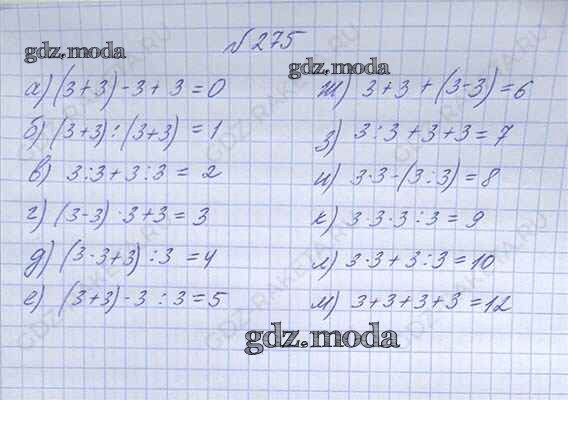 № 275
gdz.moda
gdz.moda
а) (3+3) - 3 + 3 = 0
б) (3+3) : (3+3) = 1
в) 3:3 + 3:3 = 2
г) (3-3) · 3 + 3 = 3
д) (3·3+3) : 3 = 4
е) (3+3) - 3 : 3 = 5
ж) 3 + 3 + (3-3) = 6
з) 3 : 3 + 3 + 3 = 7
и) 3·3 - (3:3) = 8
к) 3·3·3:3 = 9
л) 3·3 + 3:3 = 10
м) 3+3+3+3 = 12
gdz.moda
GDZ-RAKETA.RU